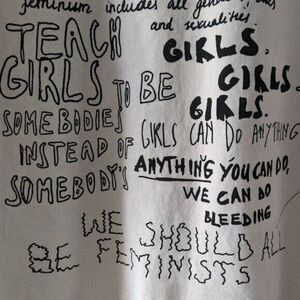 feminism includes all
and sexualities.
TEACH
GIRLS TO BE
SOMEBODIES
INSTEAD OF
SOMEBODY'S
GIRLS.
GIRLS.
GIRLS.
GIRLS CAN DO ANYTHING
ANYTHING YOU CAN DO,
WE CAN DO
BLEEDING
WE SHOULD ALL
BE FEMINISTS